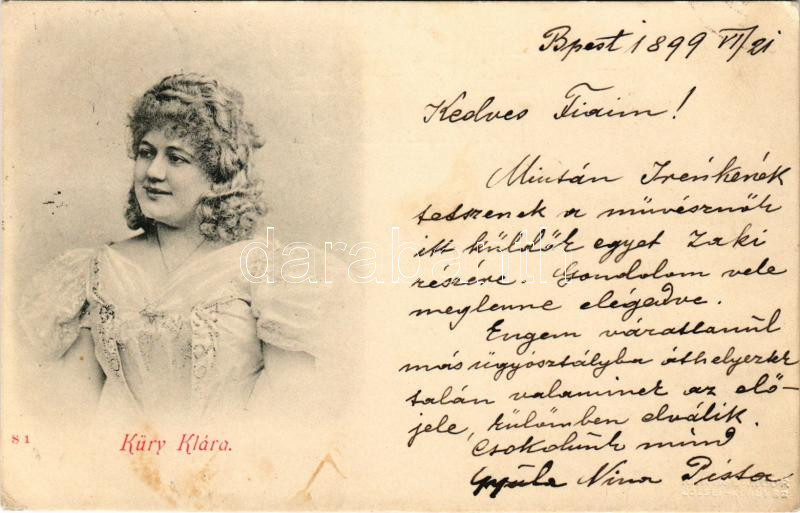 Bpest 1899 VI/21
Kedves Fiaim!
Miután Irénkének
tetszenek a művésznők
itt küldök egyet Zaki
részére. Gondolom vele
meglenne elégedve.
Engem váratlanúl
más ügyosztályba áthelyeztek
talán valaminek az elő-
jele, külömben elválik.
Csokolunk mind
Gyula Nina Pista
81
Küry Klára.
darabanth